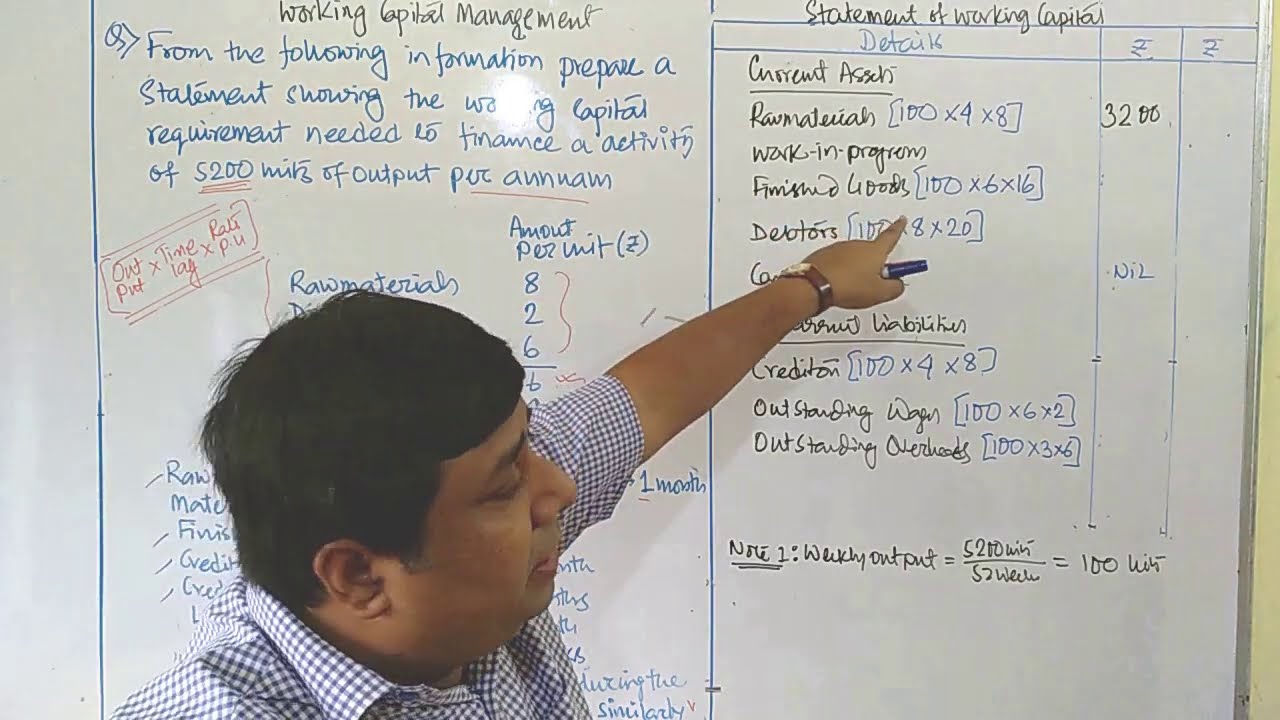 Working Capital Management
Q) From the following information prepare a
Statement showing the wo ng Capital
requirement needed to finance a activity
of 5200 units of output per annuam
Out put × Time lag × Rate p.u
Amout
Per unit (₹)
Rawmaterials 8
2
6
Raw 1 month
Mate
Finis
Credit
Cre
during the
similarly
Statement of Working Capital
Details ₹ ₹
Current Assets
Rawmaterials [100 × 4 × 8] 3200
Work-in-progress
Finished Goods [100 × 6 × 16]
Debtors [100 × 8 × 20]
Ca NiL
urrent liabilities
Creditors [100 × 4 × 8]
Outstanding Wages [100 × 6 × 2]
Outstanding Overheads [100 × 3 × 6]
Note 1: Weekly output = 5200 units / 52 week = 100 units